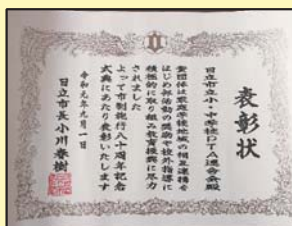 表彰状
日立市立小・中学校PTA連合会殿
貴団体は家庭学校地域の相互連携を
はじめ部活動の奨励や校外指導に
積極的に取り組み教育振興に尽力
されました
よって市制施行八十周年記念
式典にあたり表彰いたします
令和元年九月一日
日立市長小川春樹